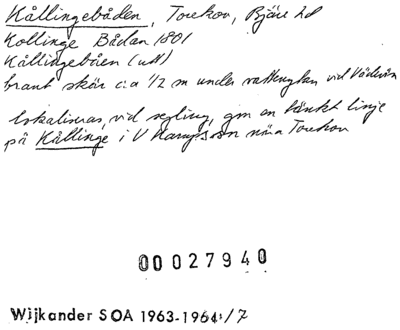 Kållingebåden, Torekov, Bjäre hd
Kollinge Bådan 1801
Kållingebåen (utt)
brant skär c:a 1/2 m under vattenytan vid Väderön
lokaliseras, vid segling, gm en tänkt linje
på Kållinge i V Karup sn nära Torekov
00027940
Wijkander SOA 1963-1964:/7